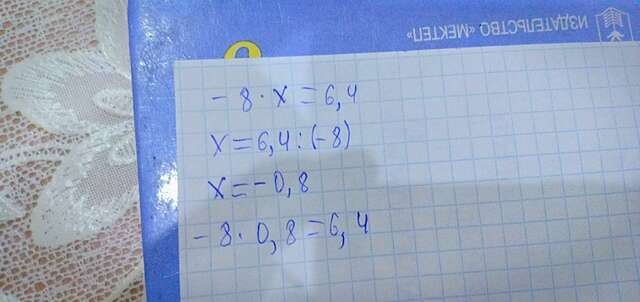 ИЗДАТЕЛЬСТВО «МЕКТЕП»
- 8 · x = 6,4
x = 6,4 : (-8)
x = -0,8
- 8 · 0,8 = 6,4